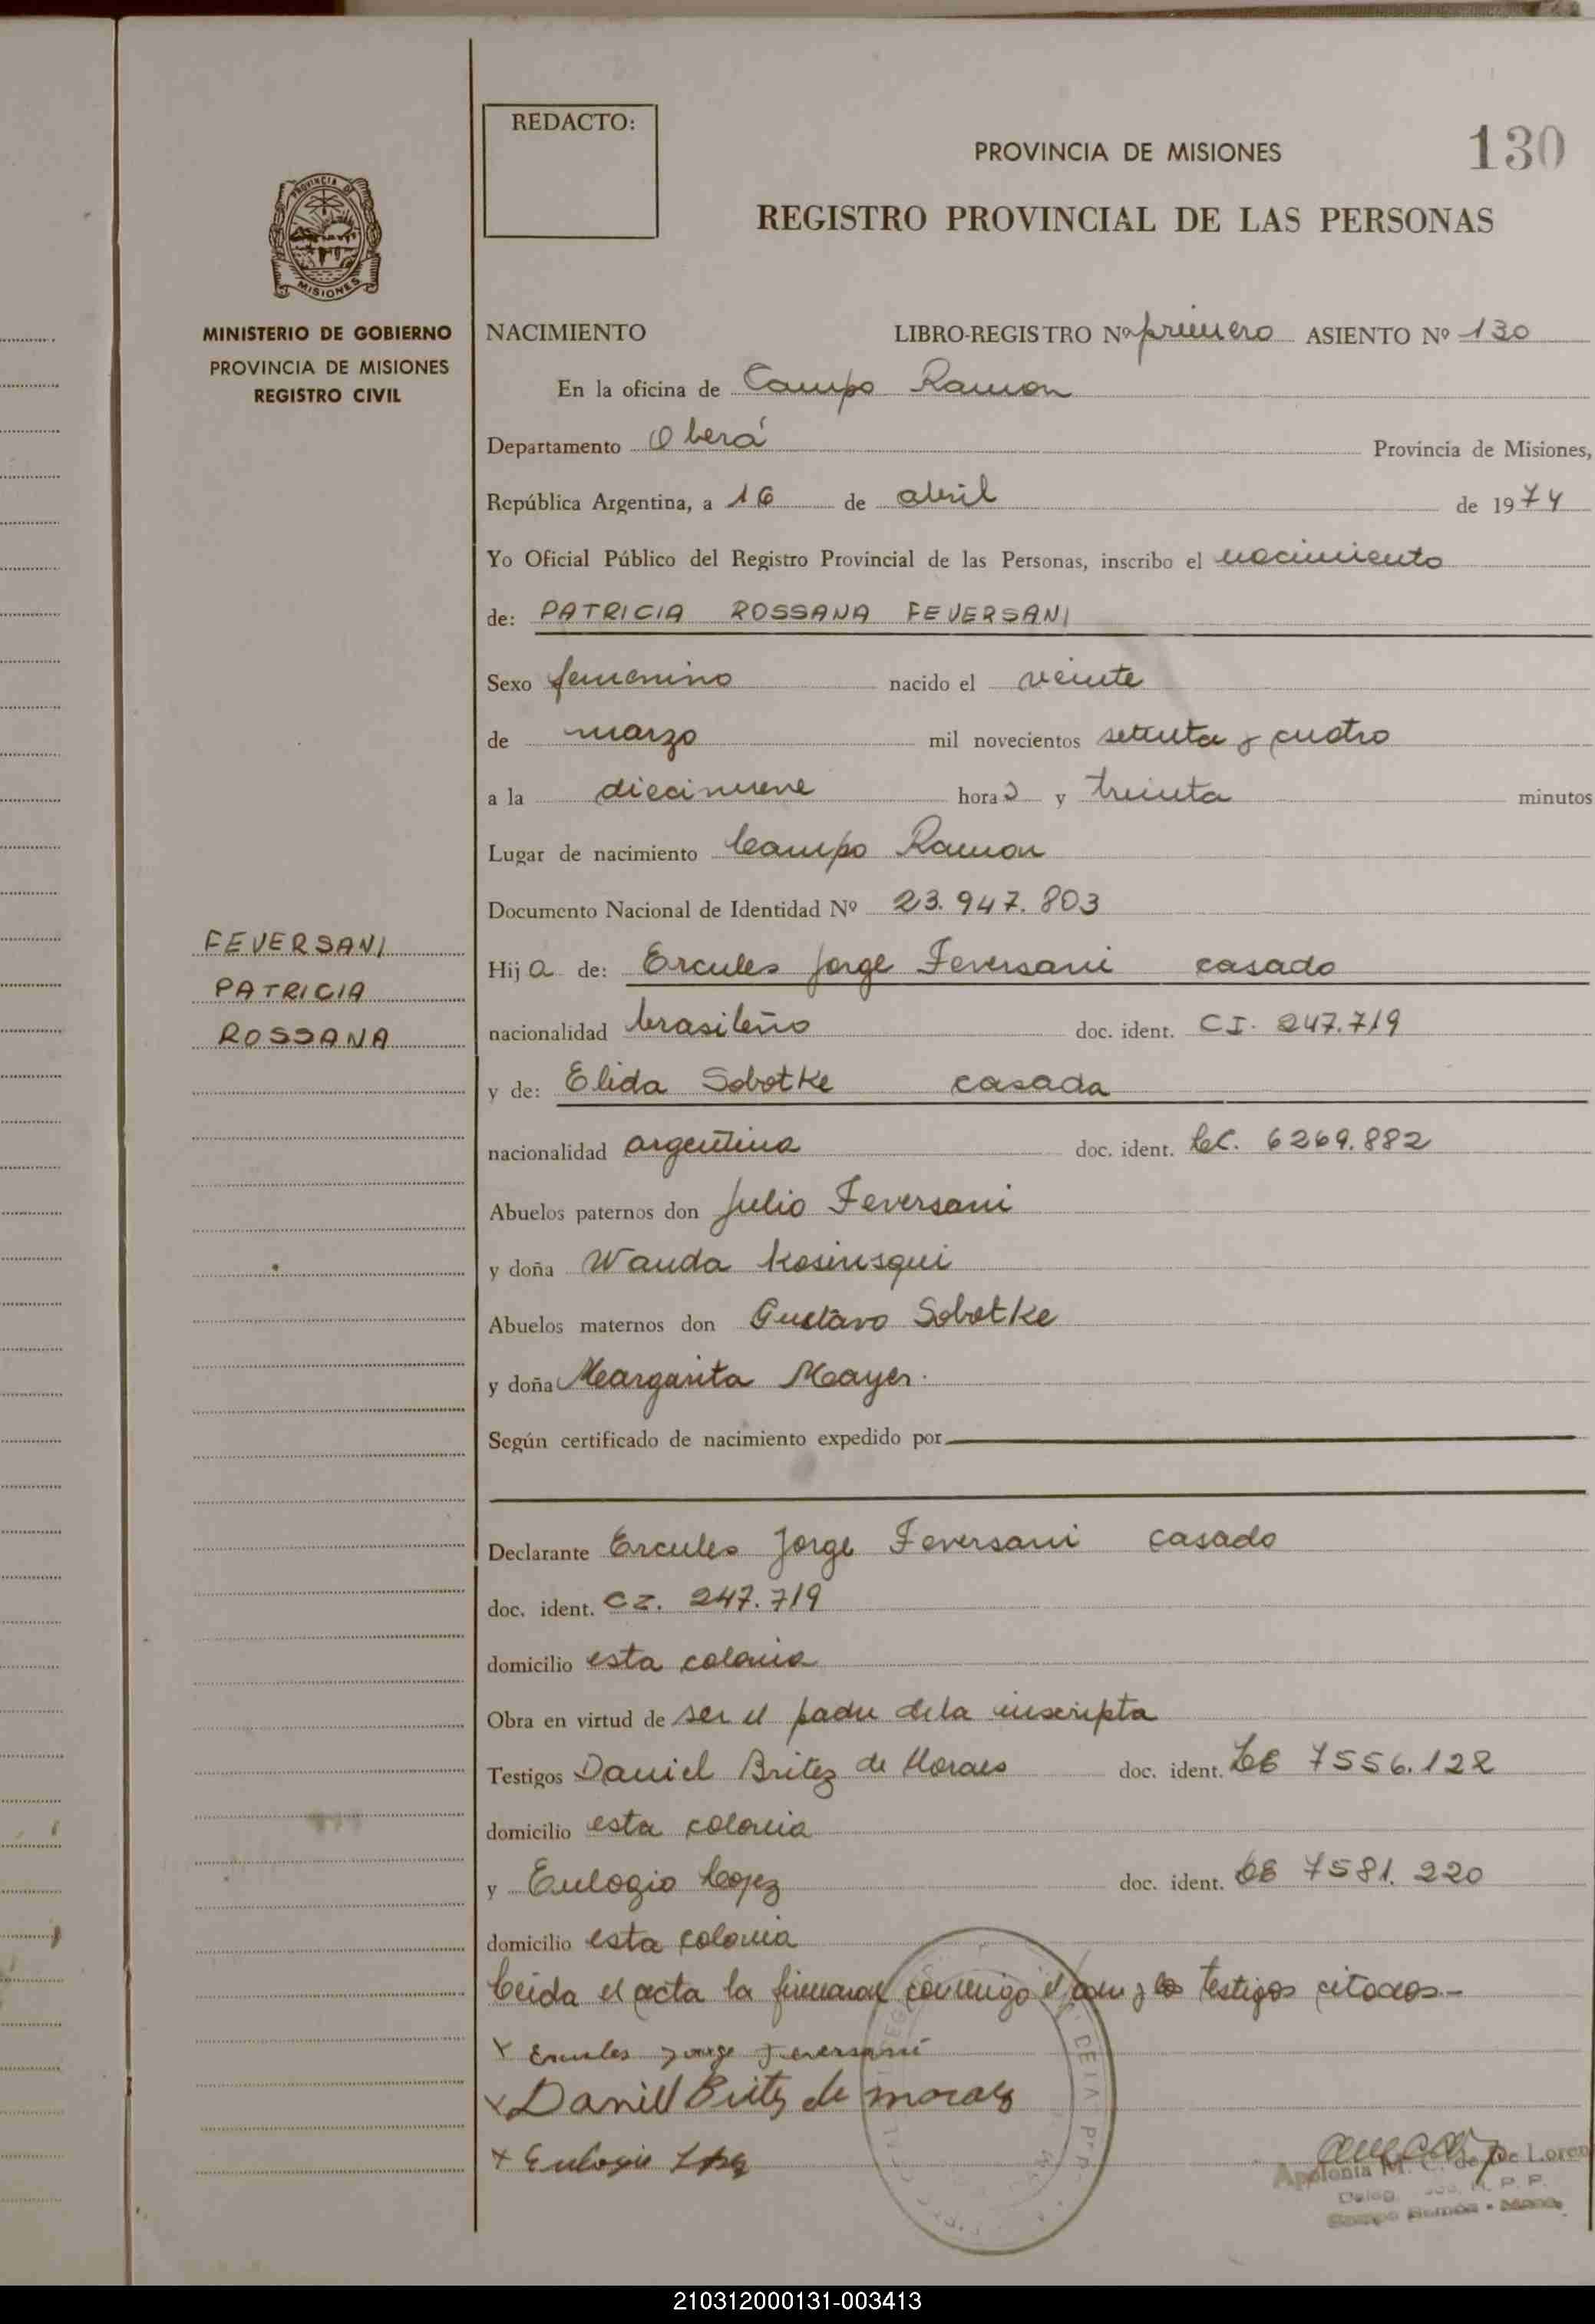 REDACTO:
PROVINCIA DE MISIONES
130
REGISTRO PROVINCIAL DE LAS PERSONAS
PROVINCIA DE
MISIONES
MINISTERIO DE GOBIERNO
PROVINCIA DE MISIONES
REGISTRO CIVIL
NACIMIENTO LIBRO-REGISTRO Nº primero ASIENTO Nº 130
En la oficina de Campo Ramon
Departamento Oberá Provincia de Misiones,
República Argentina, a 16 de abril de 1974
Yo Oficial Público del Registro Provincial de las Personas, inscribo el nacimiento
de: PATRICIA ROSSANA FEVERSANI
Sexo femenino nacido el veinte
de marzo mil novecientos setenta y cuatro
a la diecinueve horas y treinta minutos
Lugar de nacimiento Campo Ramon
Documento Nacional de Identidad Nº 23.947.803
FEVERSANI
PATRICIA
ROSSANA
Hija de: Ercules Jorge Feversani casado
nacionalidad brasileño doc. ident. CI. 247.719
y de: Elida Sobotke casada
nacionalidad argentina doc. ident. LC. 6269.882
Abuelos paternos don Julio Feversani
y doña Wanda Kosinsqui
Abuelos maternos don Gustavo Sobotke
y doña Margarita Mayer.
Según certificado de nacimiento expedido por
Declarante Ercules Jorge Feversani casado
doc. ident. CI. 247.719
domicilio esta colonia
Obra en virtud de ser el padre de la inscripta
Testigos Daniel Britez de Moraes doc. ident. LE 7556.122
domicilio esta colonia
y Eulogio Lopez doc. ident. LE 7581.220
domicilio esta colonia
Leida el acta la firmaran conmigo el padre y los testigos citados.-
x Ercules Jorge Feversani
x Daniel Britez de moraes
x Eulogio Lopez
Apolonia M. C. de De Loren
Campo Ramón - Mnes.
210312000131-003413